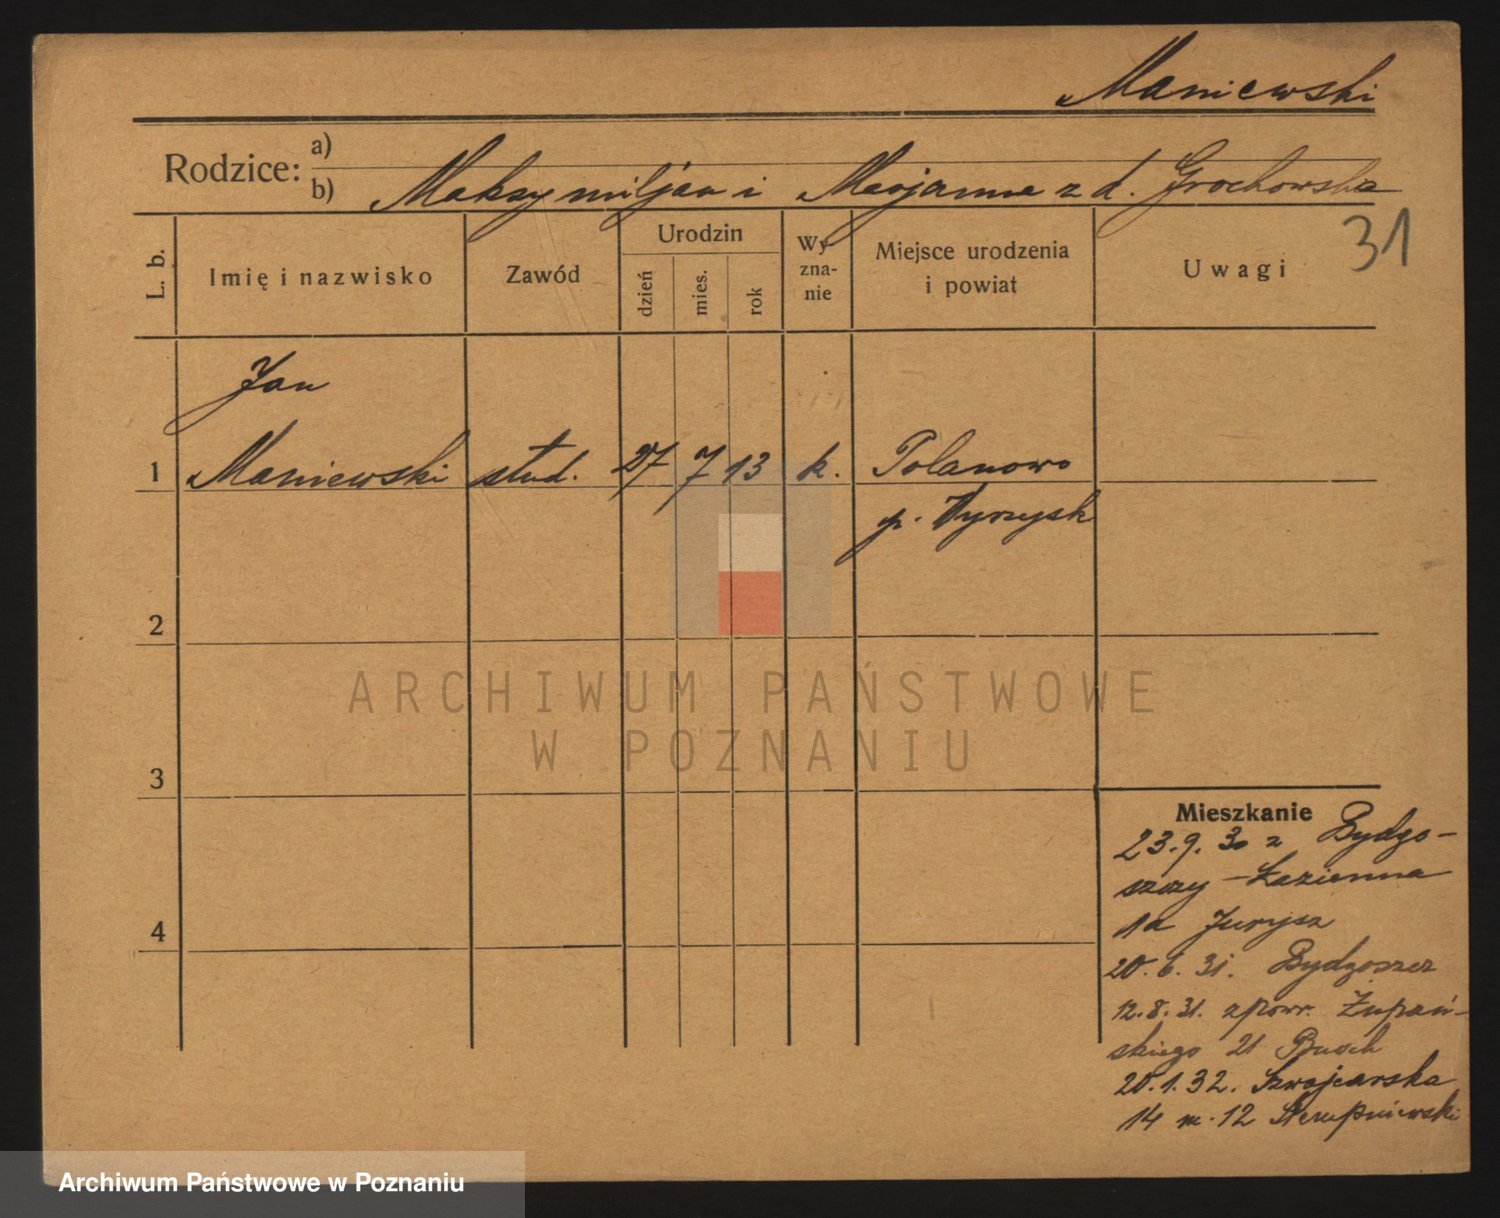 Maniewski
Rodzice: a)
b) Maksymiljan i Marjanna z d. Grochowska
31
L. b. Imię i nazwisko Zawód Urodzin dzień mies. rok Wy- zna- nie Miejsce urodzenia i powiat Uwagi
Jan
1 Maniewski stud. 27 7 13 k. Polanowo
p. Wyrzysk
2
3
4
Mieszkanie
23.9.30 z Bydgo-
szczy - Łazienna
1a Jurysz
20.6.31. Bydgoszcz
12.8.31. zpowr. Żupań-
skiego 21 Busch
20.1.32. Szwajcarska
14 m. 12
ARCHIWUM PAŃSTWOWE
W POZNANIU
Archiwum Państwowe w Poznaniu